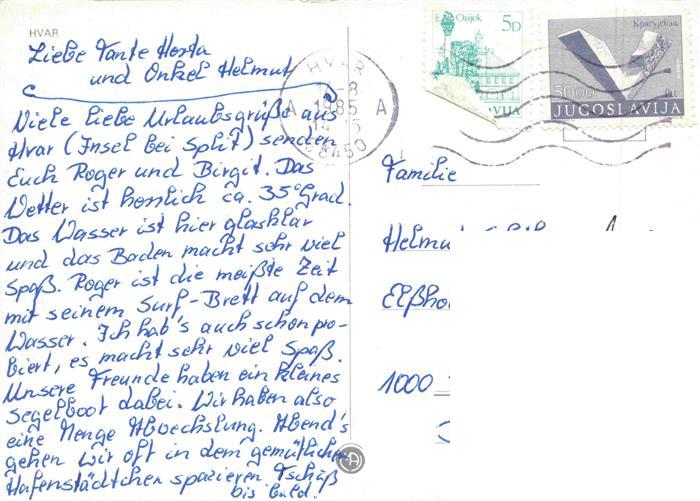 HVAR
Liebe Tante Herta
und Onkel Helmut
Viele liebe Urlaubsgrüße aus
Hvar (Insel bei Split) senden
Euch Roger und Birgit. Das
Wetter ist herrlich ca. 35° Grad.
Das Wasser ist hier glasklar
und das Baden macht sehr viel
Spaß. Roger ist die meißte Zeit
mit seinem Surf-Brett auf dem
Wasser. Ich hab's auch schon pro-
biert, es macht sehr viel Spaß.
Unsere Freunde haben ein kleines
Segelboot dabei. Wir haben also
eine Menge Abwechslung. Abend's
gehen wir oft in dem gemütlichen
Hafenstädtchen spazieren. Tschüß
bis bald.
HVAR
1985
A A
58450
Osijek 5D
VIJA
Крагујевац
JUGOSLAVIJA
Familie
Helmut
1000